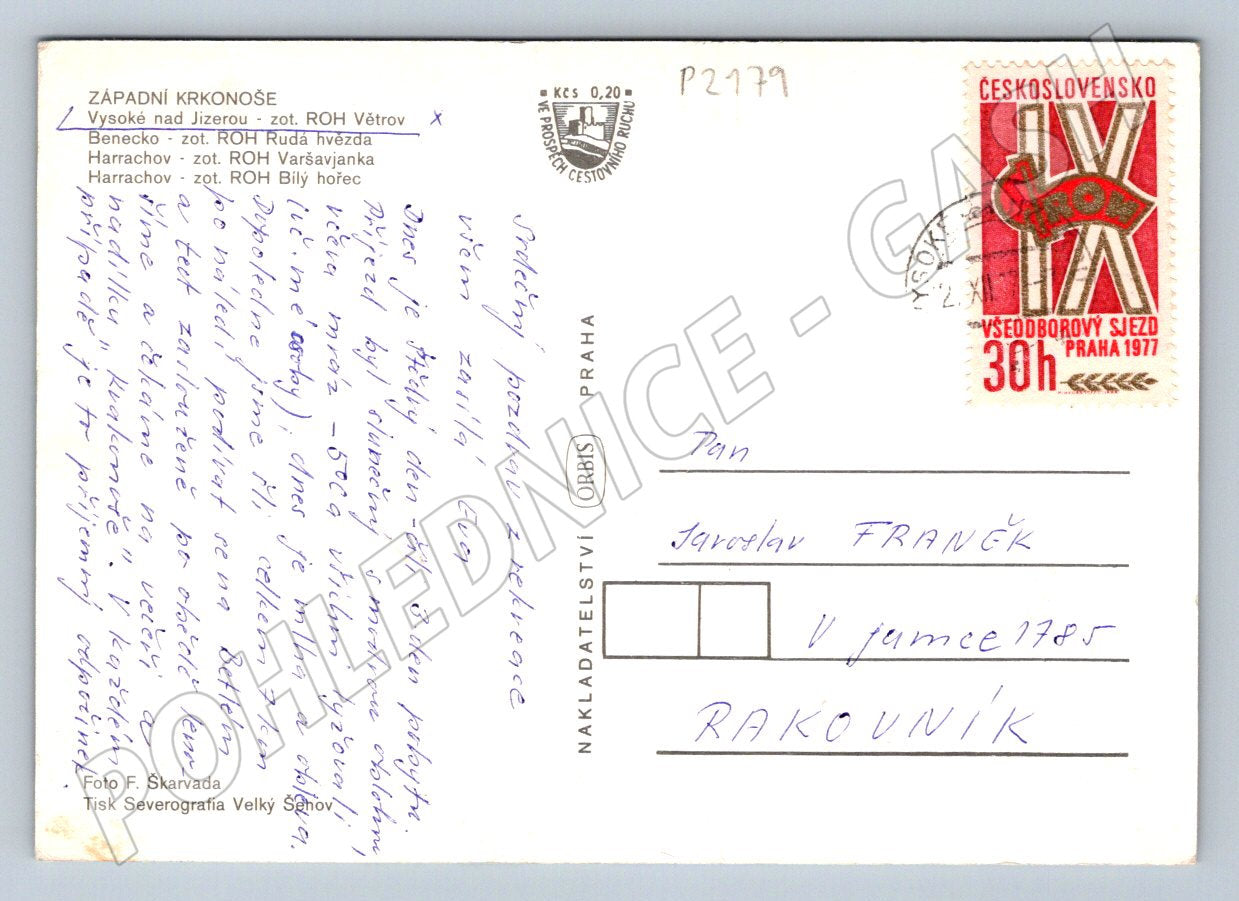 ZÁPADNÍ KRKONOŠE
Vysoké nad Jizerou - zot. ROH Větrov x
Benecko - zot. ROH Rudá hvězda
Harrachov - zot. ROH Varšavjanka
Harrachov - zot. ROH Bílý hořec
Srdečný pozdrav z rekreace
všem zasílá Eva
Dnes je štědrý den - čili 3 den pobytu.
Příjezd byl slunečný s modrou oblohou,
včera mráz -5°C a všichni lyžovali
(vč. mé osoby); dnes je mlha a obleva.
Dopoledne jsme šli celkem 7 km
po náledí podívat se na Betlém
a teď zaslouženě po obědě leno-
šíme a čekáme na večeři a
nadílku "krakonoše". V každém
případě je to příjemný odpočinek.
Foto F. Škarvada
Tisk Severografia Velký Šenov
Kčs 0,20
VE PROSPĚCH CESTOVNÍHO RUCHU
P2179
NAKLADATELSTVÍ ORBIS PRAHA
ČESKOSLOVENSKO
IX
ROH
VŠEODBOROVÝ SJEZD
PRAHA 1977
30h
Pan
Jaroslav FRANĚK
V jamce 1785
RAKOVNÍK
POHLEDNICE - GASH